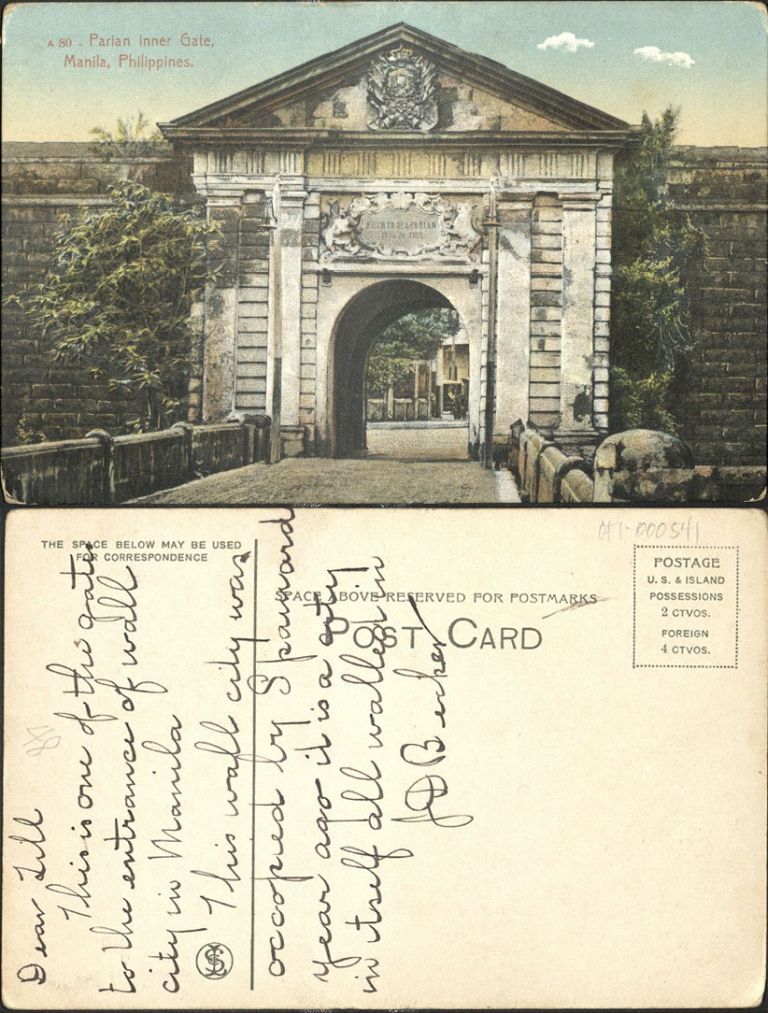 A 80 - Parian Inner Gate,
Manila, Philippines.
PUERTA DEL PARIAN
THE SPACE BELOW MAY BE USED
FOR CORRESPONDENCE
SPACE ABOVE RESERVED FOR POSTMARKS
POST CARD
POSTAGE
U. S. & ISLAND
POSSESSIONS
2 CTVOS.
FOREIGN
4 CTVOS.
Dear Lill
This is one of the gate
to the entrance of wall
city in Manila
This wall city was
occopied by Spaniard
year ago it is a city
in itself all walled in
J D Becker